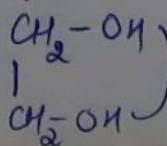 CH₂-OH
|
CH₂-OH